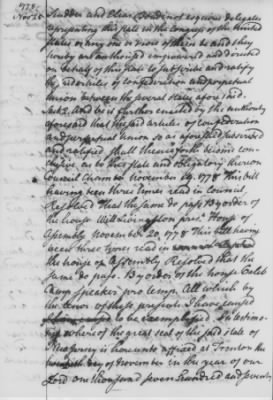 1778
Novr 25
Scudder and Elias Boudinot esquires delegates
representing this state in the congress of the united
States or any one or more of them be and they
hereby are authorised empowered and directed
on behalf of this state to subscribe and ratify
the said articles of confederation and perpetual
Union between the several states aforesaid.
Sect 2. And be it further enacted by the authority
aforesaid that the said articles of confederation
and perpetual union so as aforesaid subscribed
and ratified shall thenceforth become con-
clusive as to this state and obligatory thereon
Council Chamber November 19. 1778 This bill
having been three times read in Council,
Resolved That the same do pass By order of
the house Wil: Livingston presd. House of
Assembly November 20. 1778 This bill having
been three times read in
the house of Assembly Resolved that the
same do pass. By order of the house Caleb
Camp Speaker pro temp. All which by
the tenor of these presents I have caused
to be exemplified. In testimo-
ny whereof the great seal of the said state of
New jersey is hereunto affixed at Trenton the
day of November in the year of our
Lord one thousand seven hundred and seventy